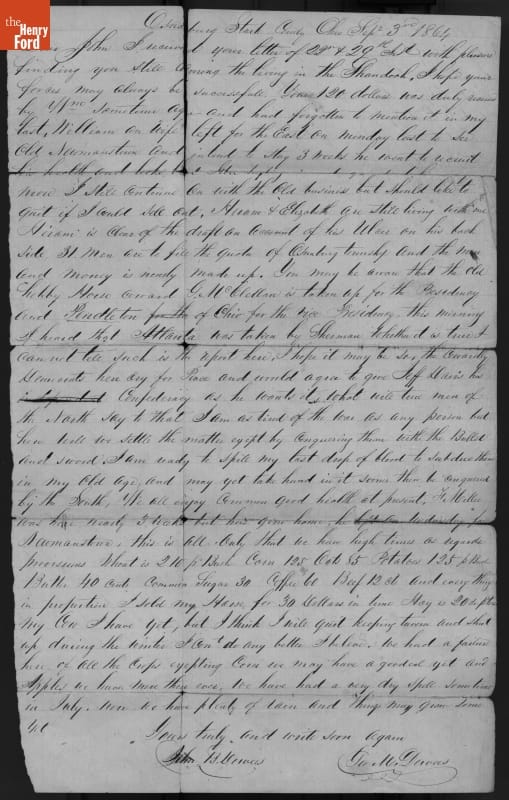 The
Henry
Ford
Osnaburg Stark County Ohio Sepr 3rd 1864
John I received your letter of 28th & 29th Inst with pleasure
finding you still among the living in the Shandoah, I hope your
forces may always be successfull. Your 120 dollars was duly received
by sometime ago and had forgotten to mention it in my
last, William an Wife left for the East on Monday last to see
Old Newmanstown and intend to Stay 3 weeks he want to recruit
his health and
more I still continue on with the Old business but should like to
quit if I could sell out, Hiram & Elizabeth are still living with me
Hiram is clear of the draft on account of his Ulcer on his back
side 31 men are to fill the quota of Osnaburg township and the men
and money is nearly made up. You may be aware that the old
Shabby Horse coward G. McClellan is taken up for the Presidency
and Pendleton of Ohio for the vice Presidency this morning
I heard that Atlanta was taken by Sherman Whether is true I
can not tell such is the report here, I hope it may be so, the cowardly
Democrats here cry for Peace and would agree to give Jeff Davis his
Confederacy as he wants it, what will true men of
the North say to that I am as tired of the war as any person but
how will we settle the matter except by conquering them with the Bullet
and sword I am ready to spill my last drop of blood to subdue them
in my Old Age, and may yet take hand in it sooner then be conquered
by the South, We all enjoy common good health at present, G. Miller
was here nearly 3 weeks but has gone home, he
Newmanstown, this is all only that we have high times as regards
provisions Wheat is 210 p Bush Corn 125 Oats 85 Potatoes 125 p Bush
Butter 40 cents Common Sugar 30 Coffee 60 Beef 12 ct and everything
in proportion I sold my Horse for 30 Dollars in time Hay is 20
my Cow I have yet, but I think I will quit keeping tavern and shut
up during the winter I can't do any better I believe. We had a failure
here of all the Crops excepting Corn we may have a good deal yet and
Apples we have more then ever, we have had a very dry spell sometime
in July. now we have plenty of rain and things may grow some
yet
Yours truly and write soon again
John B. Dewees Geo M. Dewees